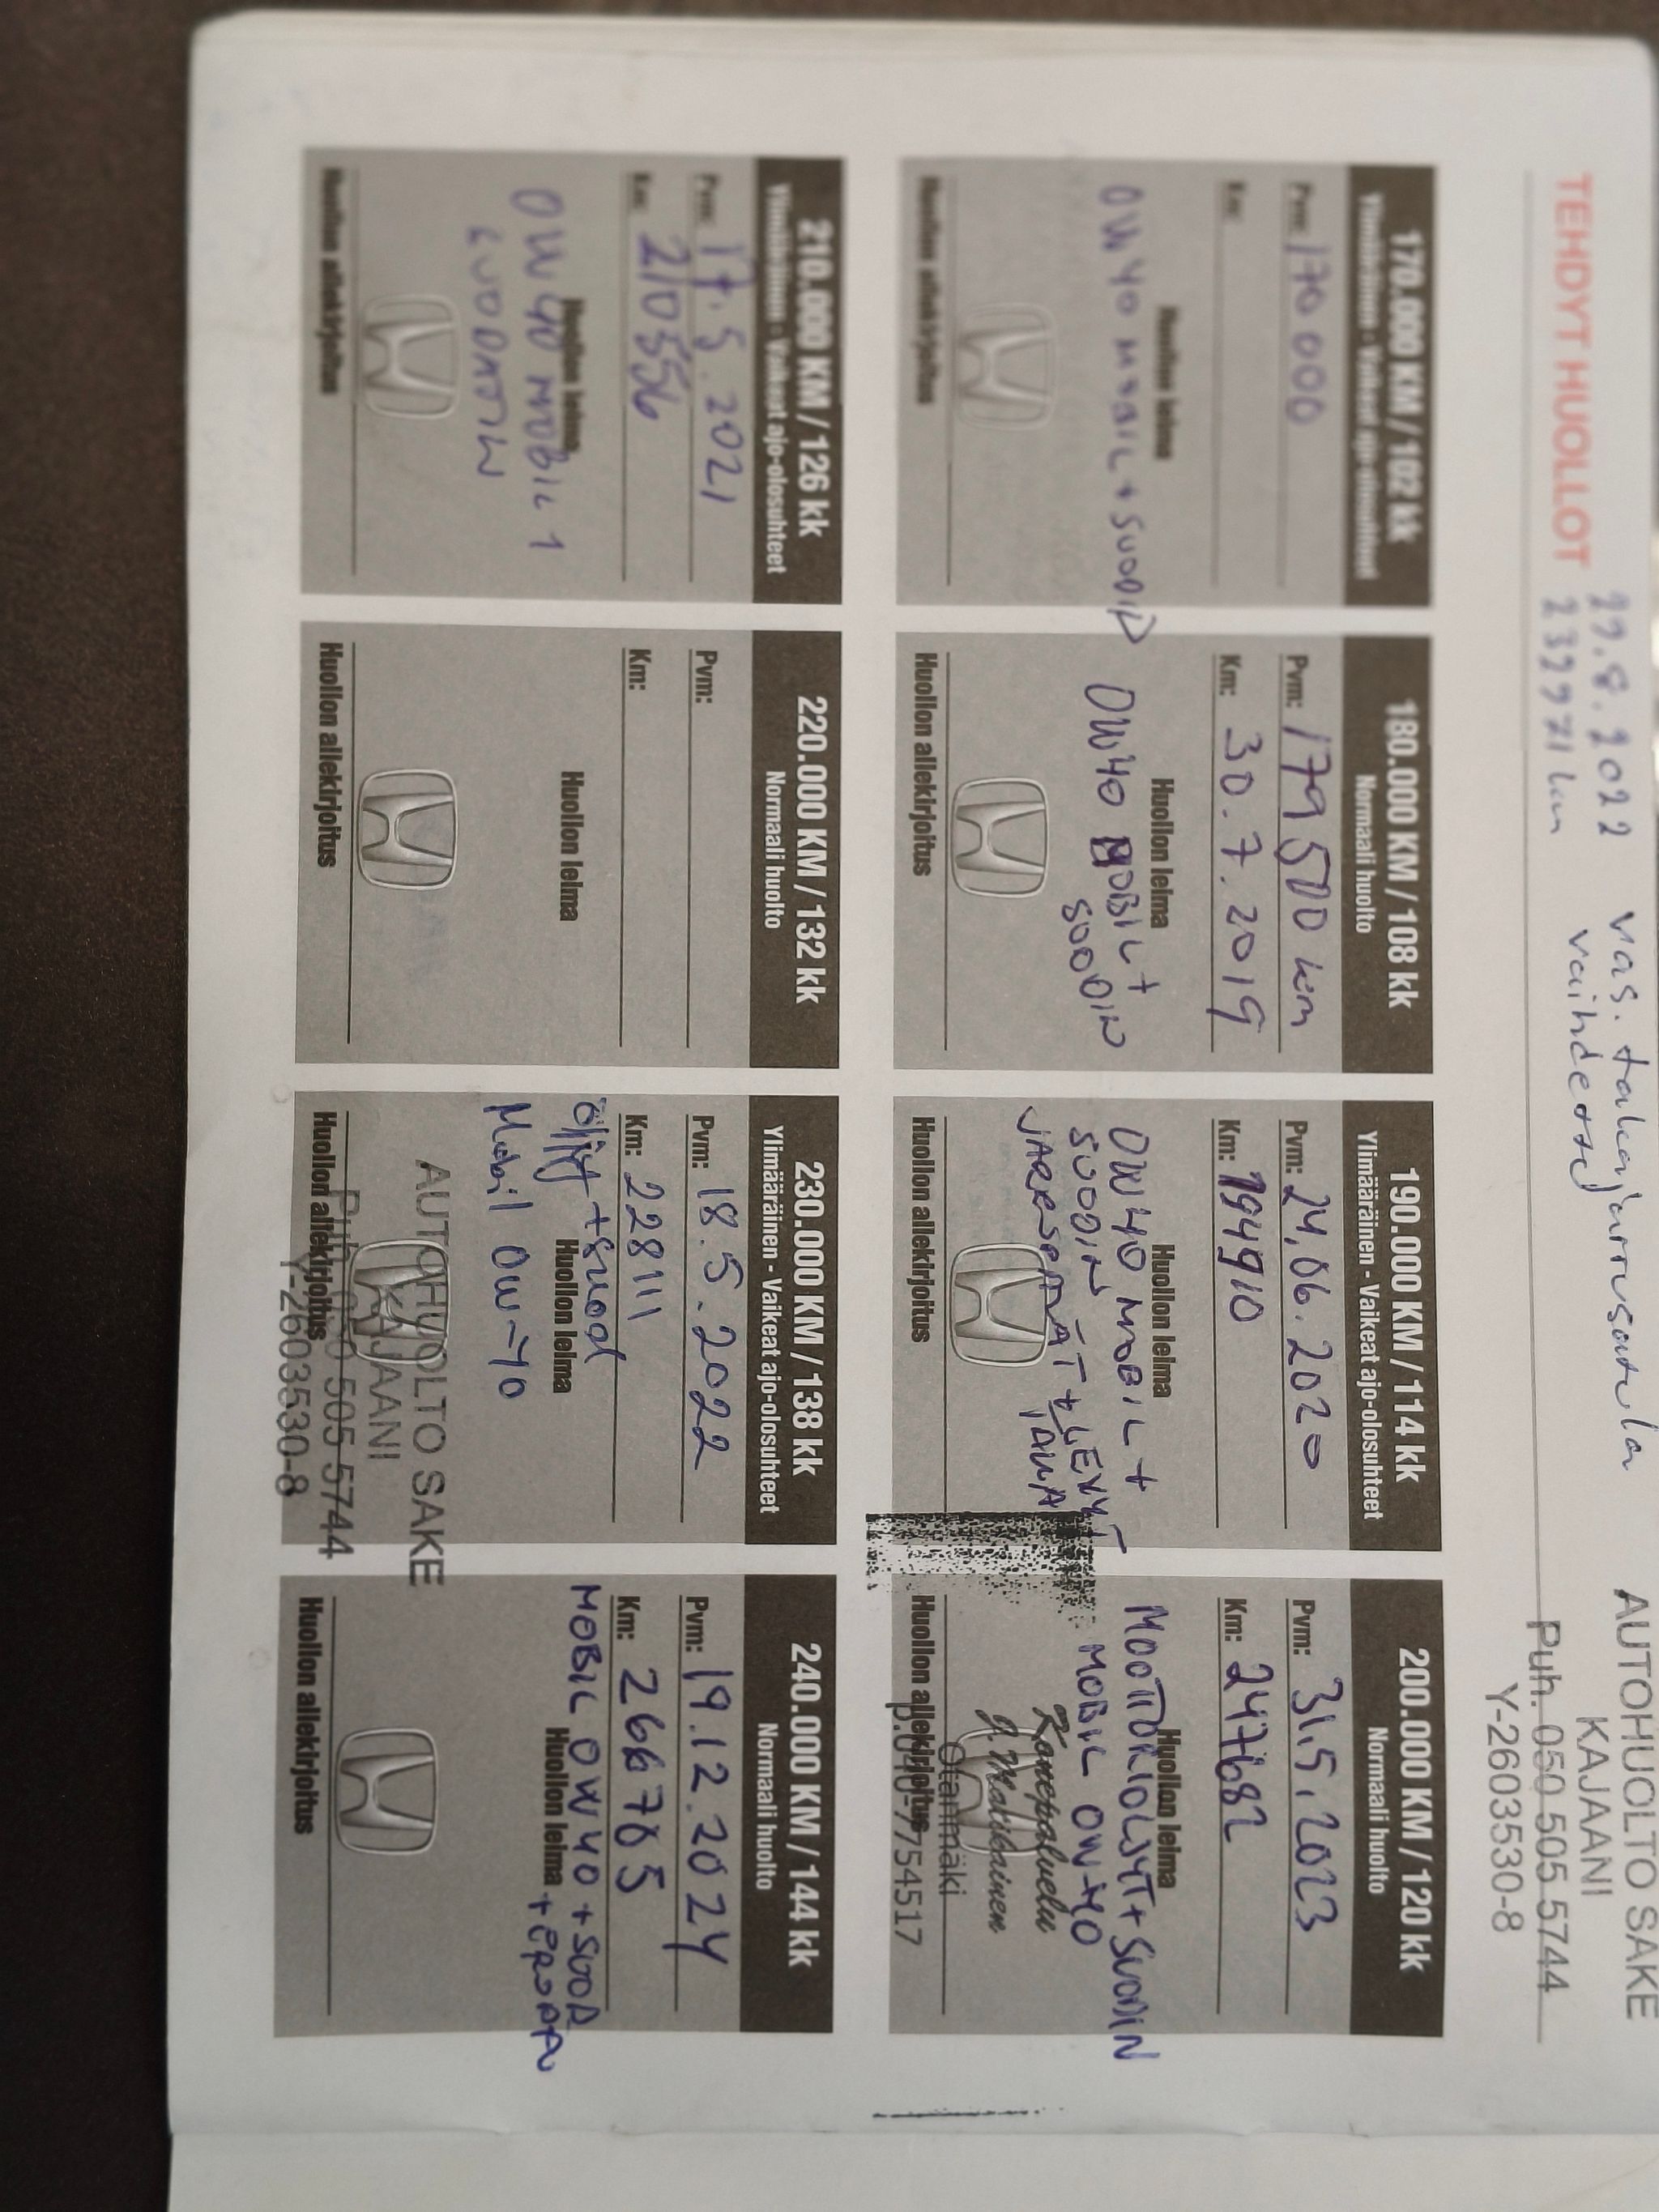 29.8.2022 vas. takajarrusatula
TEHDYT HUOLLOT 232971 km vaihdettu
AUTOHUOLTO SAKE
KAJAANI
Puh. 050 505 5744
Y-2603530-8
170.000 KM / 102 kk
Ylimääräinen - Vaikeat ajo-olosuhteet
Pvm: 170 000
Km:
Huollon leima
0W40 MOBIL + SUODIN
Huollon allekirjoitus
180.000 KM / 108 kk
Normaali huolto
Pvm: 179 500 km
Km: 30.7.2019
Huollon leima
0W40 MOBIL +
SUODIN
Huollon allekirjoitus
190.000 KM / 114 kk
Ylimääräinen - Vaikeat ajo-olosuhteet
Pvm: 24.06.2020
Km: 194910
Huollon leima
0W40 MOBIL +
SUODIN
JARRUPALAT + LEVYT
TAKA
Huollon allekirjoitus
200.000 KM / 120 kk
Normaali huolto
Pvm: 31.5.2023
Km: 247682
Huollon leima
MOOTTORIÖLJYT + SUODIN
MOBIL 0W-40
Konepalvelu
J. Matikainen
Otanmäki
p.040-7754517
Huollon allekirjoitus
210.000 KM / 126 kk
Ylimääräinen - Vaikeat ajo-olosuhteet
Pvm: 17.5.2021
Km: 210556
Huollon leima
0W40 MOBIL 1
SUODATIN
Huollon allekirjoitus
220.000 KM / 132 kk
Normaali huolto
Pvm:
Km:
Huollon leima
Huollon allekirjoitus
230.000 KM / 138 kk
Ylimääräinen - Vaikeat ajo-olosuhteet
Pvm: 18.5.2022
Km: 228111
Huollon leima
öljyt + suod
Mobil 0W-40
AUTOHUOLTO SAKE
KAJAANI
Puh. 050 505 5744
Y-2603530-8
Huollon allekirjoitus
240.000 KM / 144 kk
Normaali huolto
Pvm: 19.12.2024
Km: 266785
Huollon leima
MOBIL 0W40 + SUOD
Huollon allekirjoitus